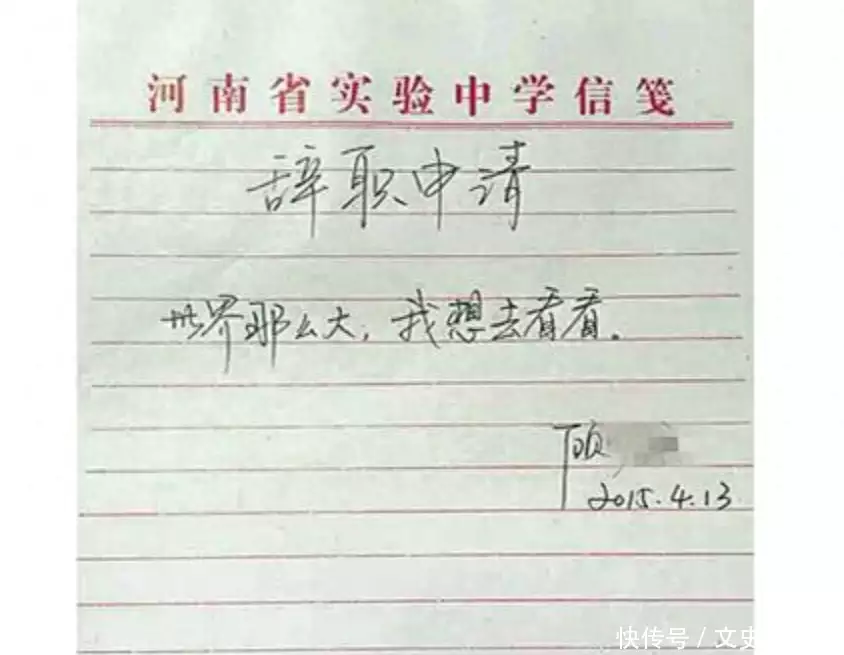 河南省实验中学信笺
辞职申请
世界那么大，我想去看看。
顾
2015.4.13
快传号／文史